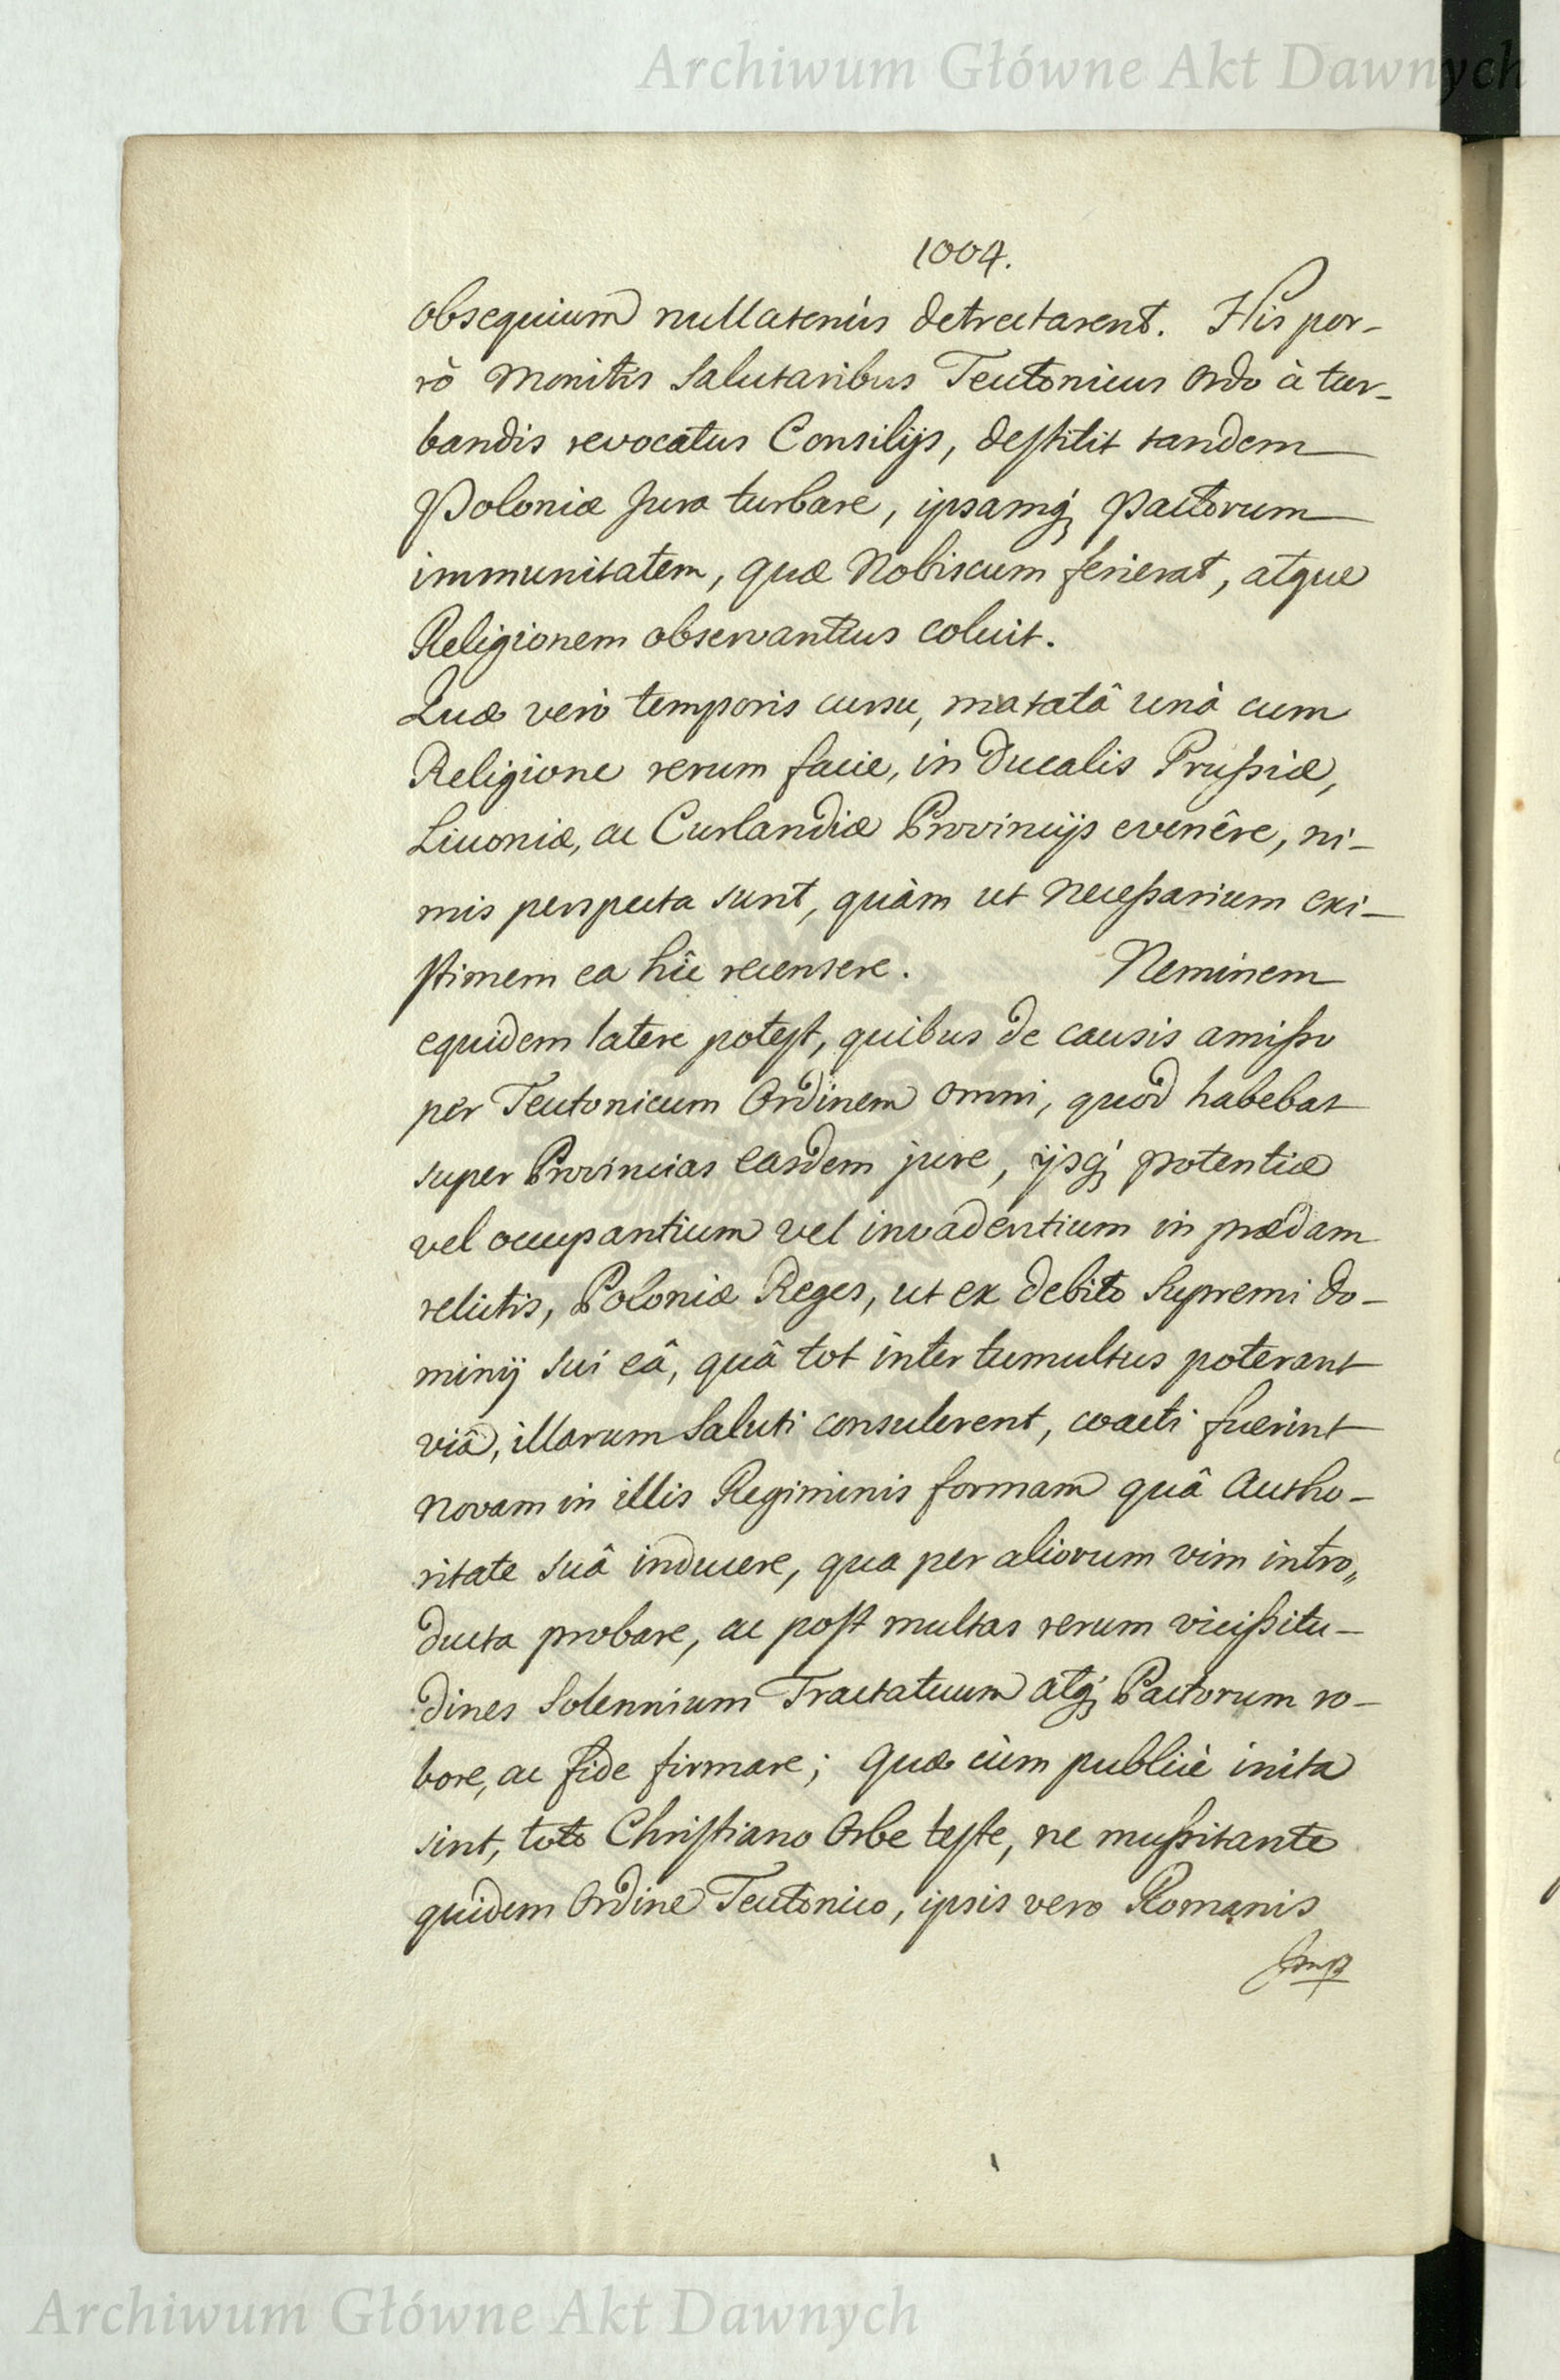 Archiwum Główne Akt Dawnych
1004.
obsequium nullatenùs detrectarent. His por-
rò Monitis Salutaribus Teutonicus Ordo à tur-
bandis revocatus Consilijs, destitit tandem
Poloniæ Jura turbare, ipsamq́; Pactorum
immunitatem, quæ Nobiscum ferierat, atque
Religionem observantius coluit.
Quæ verò temporis cursu, matatâ unà cum
Religione rerum facie, in Ducalis Prussiæ,
Livoniæ, ac Curlandiæ Provincijs evenêre, ni-
mis perspecta sunt, quàm ut Necessarium exi-
stimem ea hîc recensere. Neminem
equidem latere potest, quibus de causis amisso
per Teutonicum Ordinem omni, quod habebat
super Provincias easdem jure, ijsq́; potentiæ
vel occupantium vel invadentium in prædam
relictis, Poloniæ Reges, ut ex debito Supremi do-
minij sui eâ, quâ tot inter tumultus poterant
viâ, illarum Saluti consulerent, coacti fuerint
Novam in illis Regiminis formam quâ Autho-
ritate suâ inducere, qua per aliorum vim intro„
ducta probare, ac post multas rerum vicissitu-
dines Solennium Tractatuum atq́; Pactorum ro-
bore, ac fide firmare; quæ cùm publicè inita
sint, toto Christiano Orbe teste, ne mussitante
quidem Ordine Teutonico, ipsis vero Romanis
Imp
Archiwum Główne Akt Dawnych